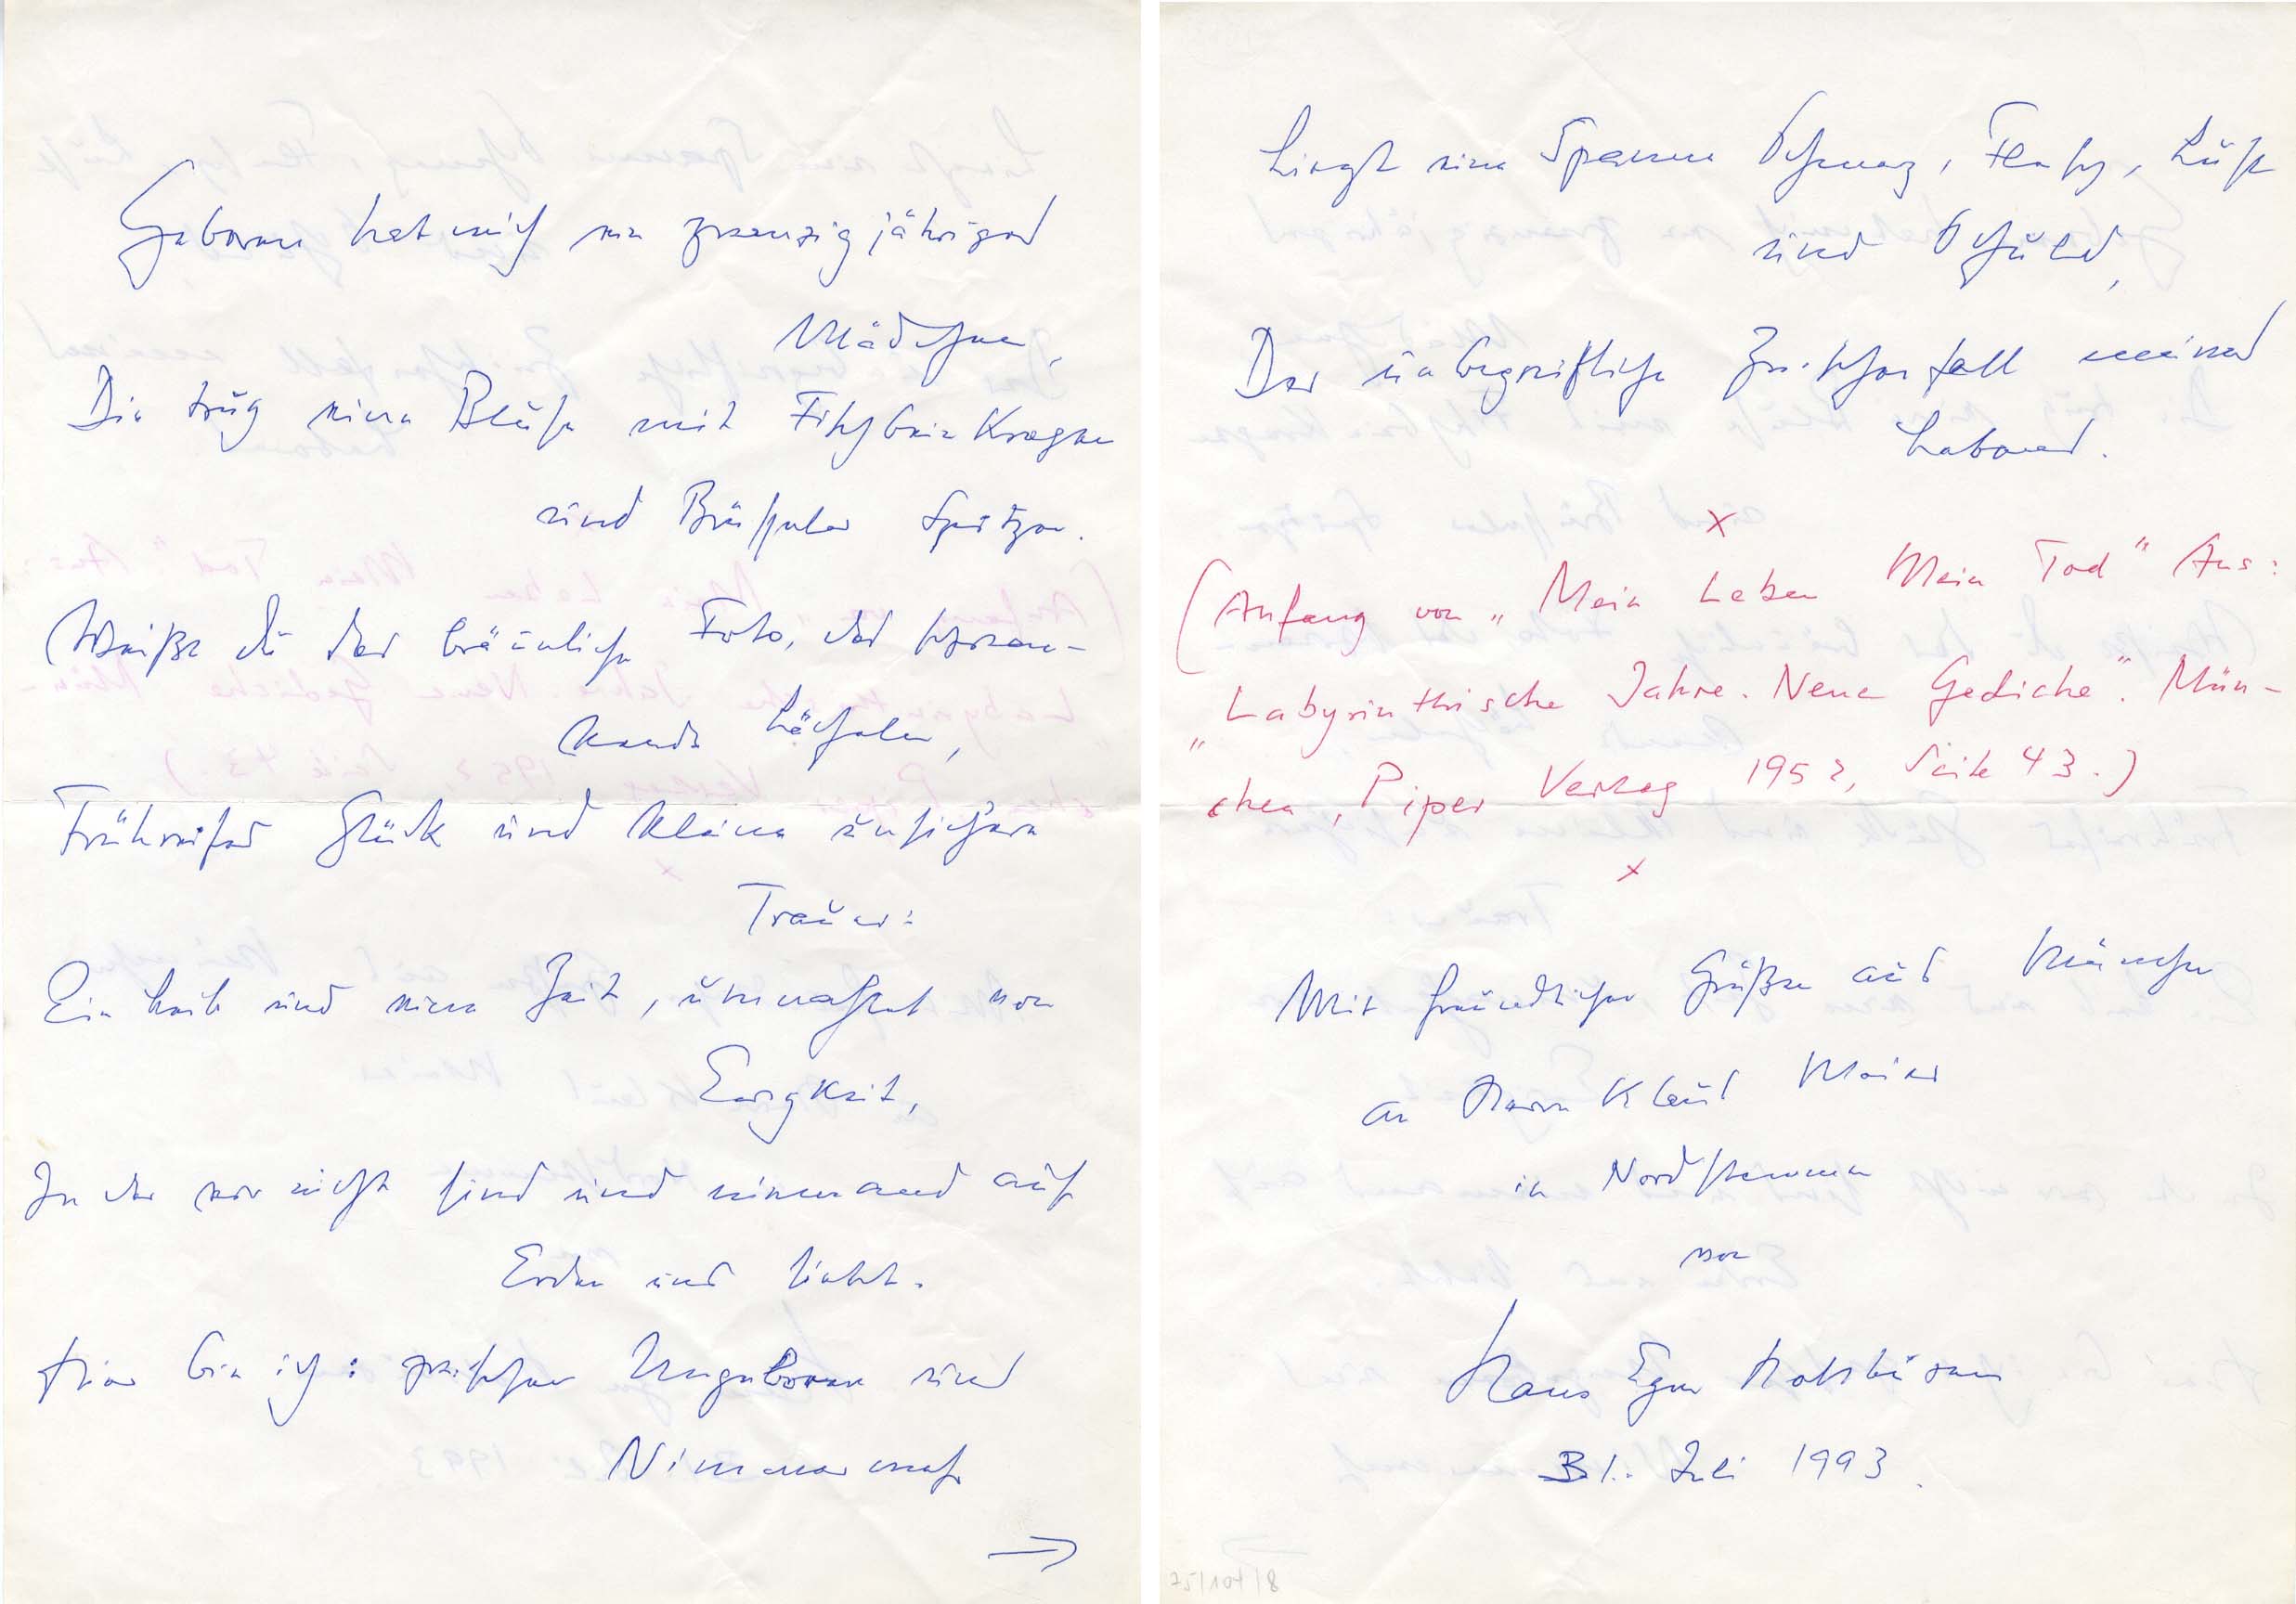 Geboren hat mich ein zwanzigjähriges
Mädchen,
Die trug eine Bluse mit Fischbein Kragen
und Brüsseler Spitzen.
Weißt du das bräunliche Foto, das schwan-
kende Lächeln,
Frühreifes Glück und kleine unsichere
Trauer:
Ein Leib und eine Zeit, umnachtet von
Ewigkeit,
In der wir nicht sind und niemand auf
Erden uns liebt.
Hier bin ich: zwischen Ungeboren und
Nimmermehr
→
Liegt eine Spanne Schmerz, Fleisch, Lust
und Schuld,
Der unbegreifliche Zwischenfall meines
Lebens.
x
(Anfang von „Mein Leben Mein Tod" Aus:
„Labyrinthische Jahre. Neue Gediche". Mün-
chen, Piper Verlag 1952, Seite 43.)
x
Mit freundlichen Grüßen aus München
an Herrn Klaus Meier
in Nordstemmen
von
Hans Egon Holthusen
31. Juli 1993.